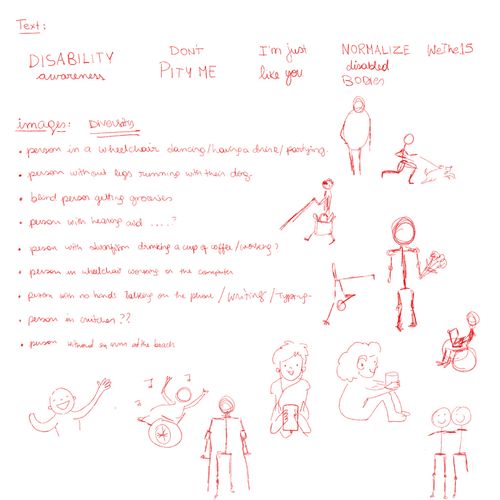 Text:
DISABILITY awareness
DON'T PITY ME
I'm just like you
NORMALIZE disabled BODIES
WeThe15
images: Diversity
• person in a wheelchair dancing/having a drink/partying.
• person without legs running with their dog.
• blind person getting groceries
• person with hearing aid ....?
• person with drinking a cup of coffee/working?
• person in wheelchair working on the computer
• person with no hands talking on the phone/writing/typing.
• person on crutches??
• person without arms at the beach